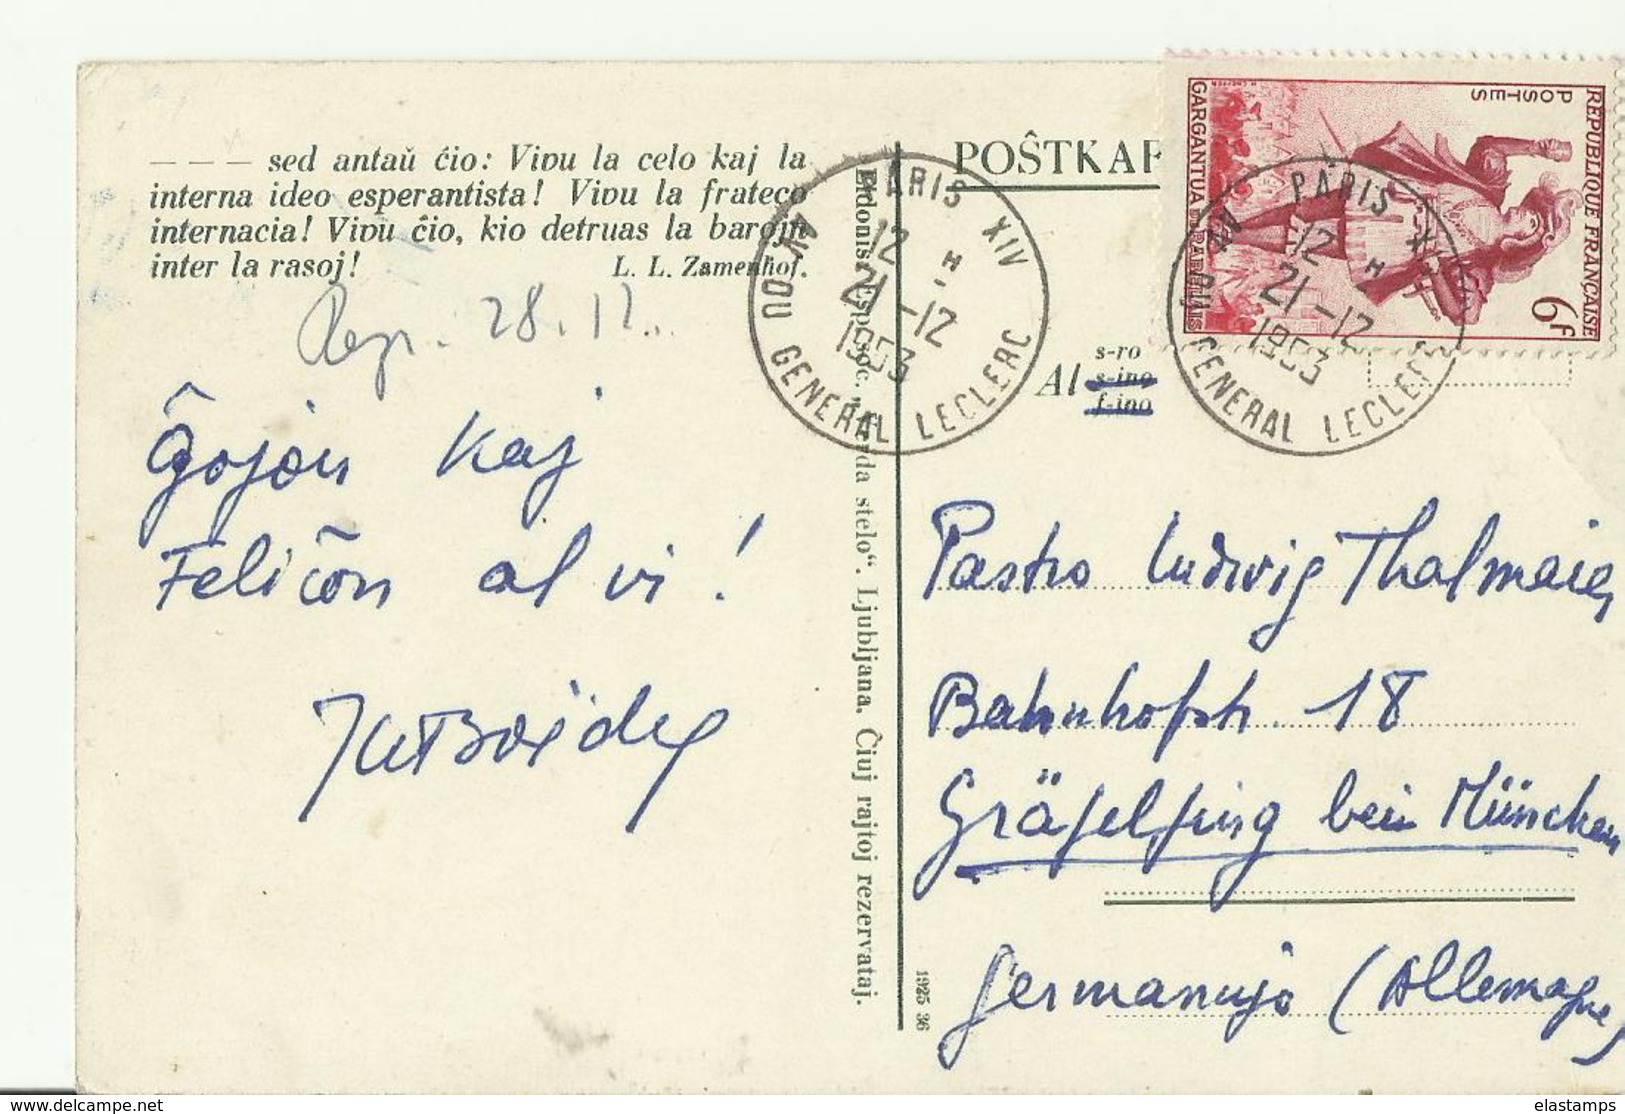 — — — sed antaŭ ĉio: Vivu la celo kaj la
interna ideo esperantista! Vivu la frateco
internacia! Vivu ĉio, kio detruas la barojn
inter la rasoj!
L. L. Zamenhof.
28.12.
Ĝojon kaj
Feliĉon al vi!
Eldonis: Esp. soc. „Verda stelo“. Ljubljana. Ĉiuj rajtoj rezervataj.
1925 36
POŜTKAR
PARIS XIV
12 H
21-12
1953
AV. DU GENERAL LECLERC
REPUBLIQUE FRANÇAISE
POSTES
6F
GARGANTUA DE RABELAIS
PARIS XIV
12 H
21-12
1953
AV. DU GENERAL LECLERC
Al s-ro
s-ino
f-ino
Pastro Ludwig Thalmaier
Bahnhofstr. 18
Gräfelfing bei München
Germanujo (Allemagne)
www.delcampe.net
elastamps